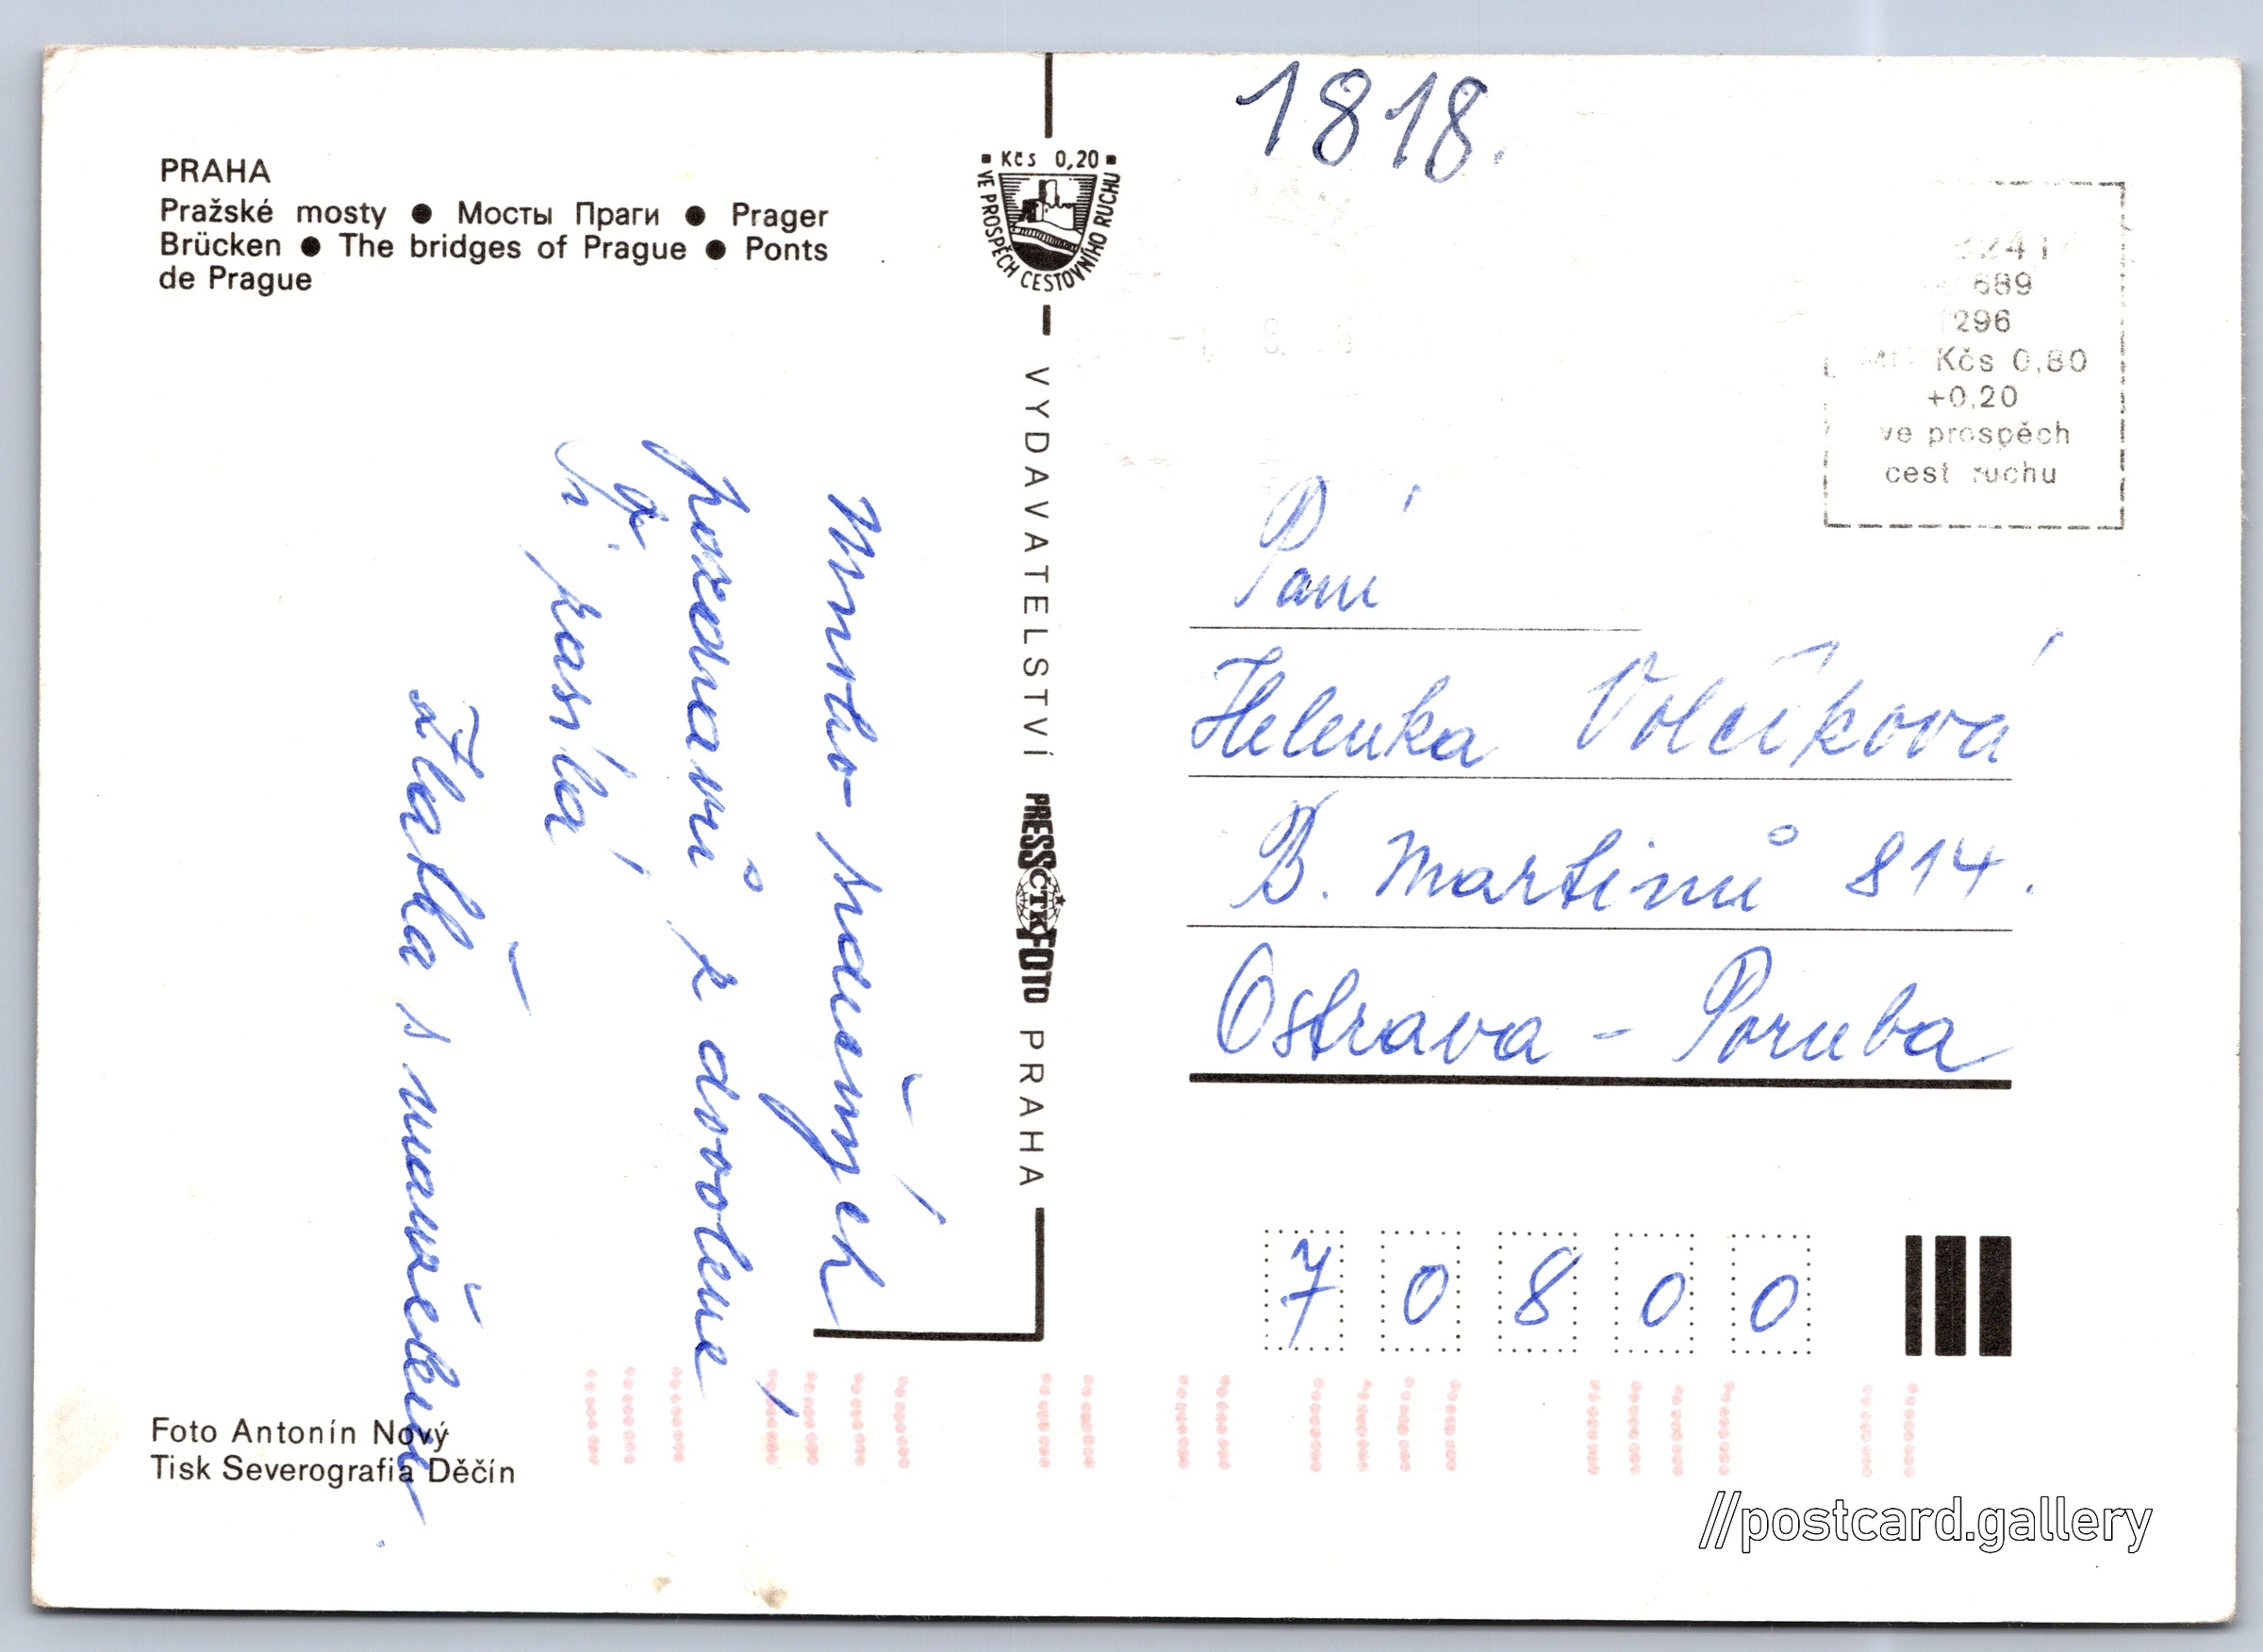 PRAHA
Pražské mosty ● Мосты Праги ● Prager
Brücken ● The bridges of Prague ● Ponts
de Prague
Mnoho srdečných
pozdravů z dovolené
Ti posílá
Zlatka s manželem
Foto Antonín Nový
Tisk Severografia Děčín
Kčs 0,20
VE PROSPĚCH CESTOVNÍHO RUCHU
VYDAVATELSTVÍ PRESSFOTO PRAHA
ČTK
1818.
689
296
Kčs 0,80
+0,20
ve prospěch
cest ruchu
Paní
Helenka Volčíková
B. Martinů 814.
Ostrava - Poruba
7 0 8 0 0
//postcard.gallery